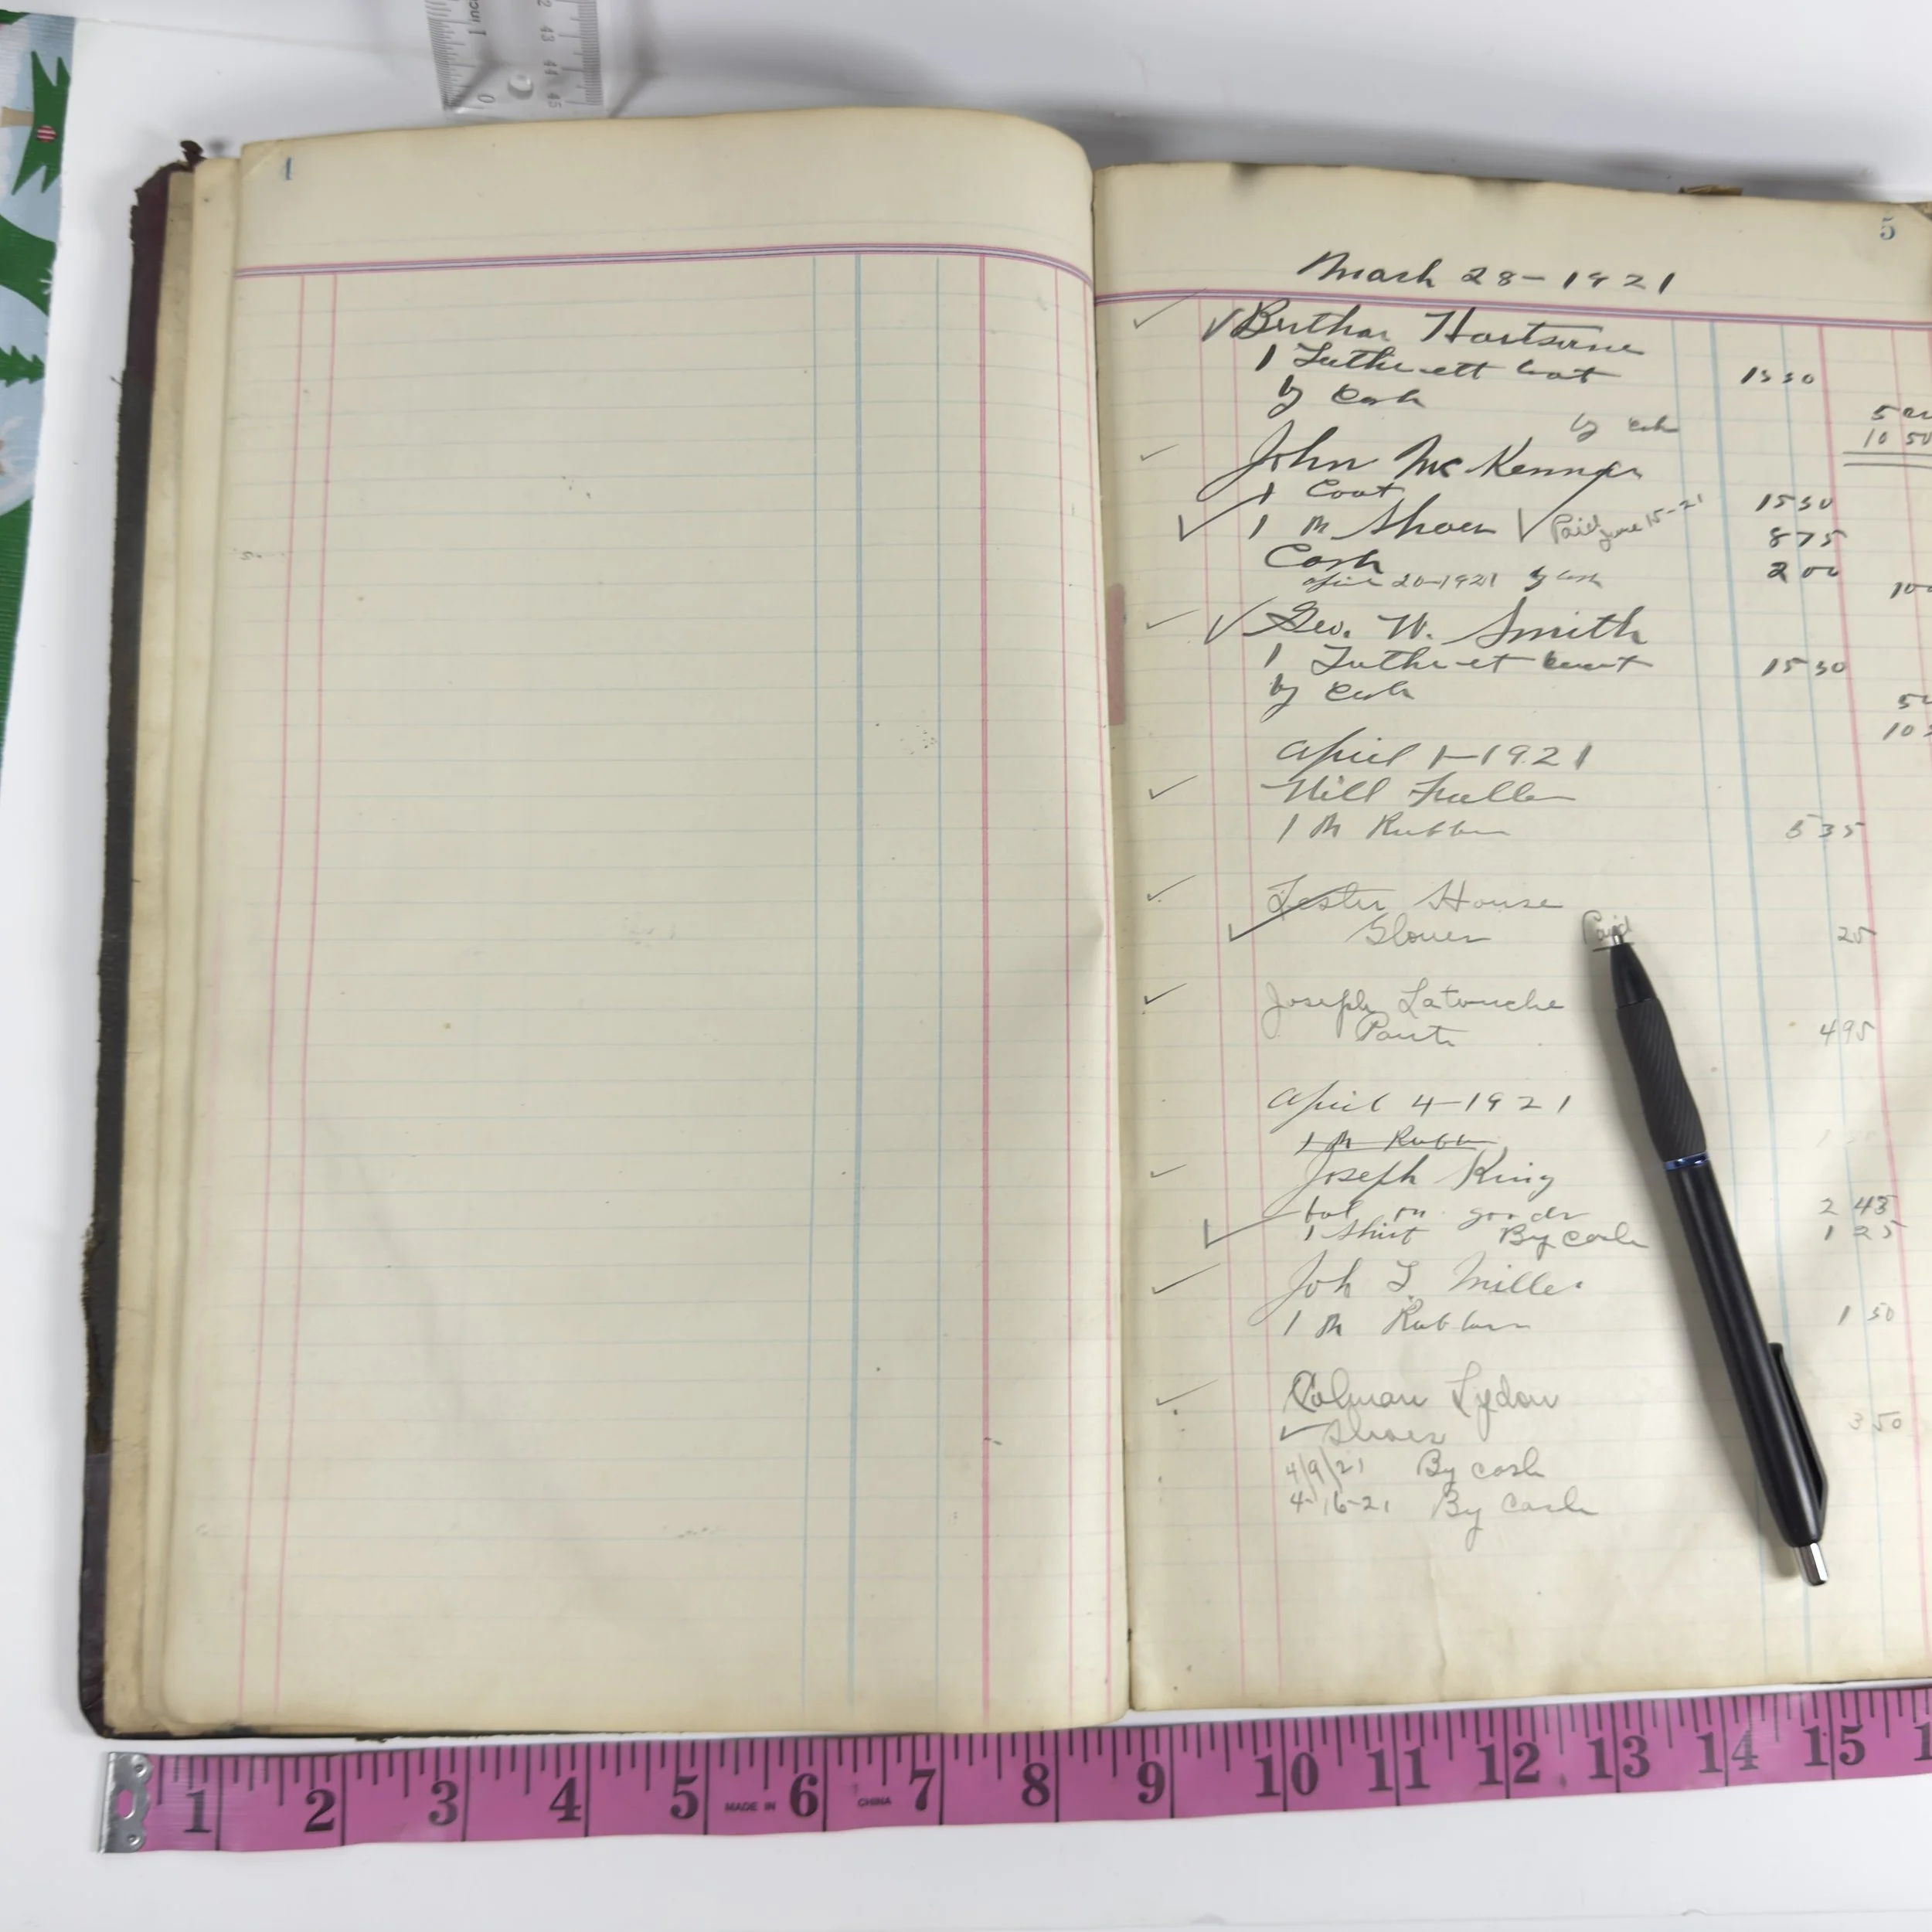 1 inc
0
42
43
44
45
4
5
March 28-1921
Bertha
1 coat 15 50
by Cash 5 00
by cash 10 50
John McKenna
1 Coat 15 50
1 Pr Shoes Paid June 15-21 8 75
Cash 2 00
April 20-1921 by Cash 10 0
Geo. W. Smith
1 coat 15 50
by Cash 5 0
10 5
April 1-1921
Will Fuller
1 Pr Rubbers 5 35
Lester House
Gloves Paid 25
Joseph Latouche
Pants 4 95
April 4-1921
1 Pr Rubber
Joseph King
bal on goods 2 43
1 Shirt By cash 1 25
Joh L. Miller
1 Pr Rubbers 1 50
Colman Lydon
Shoes 3 50
4/9/21 By cash
4-16-21 By Cash
1 2 3 4 5 MADE IN 6 CHINA 7 8 9 10 11 12 13 14 15 1